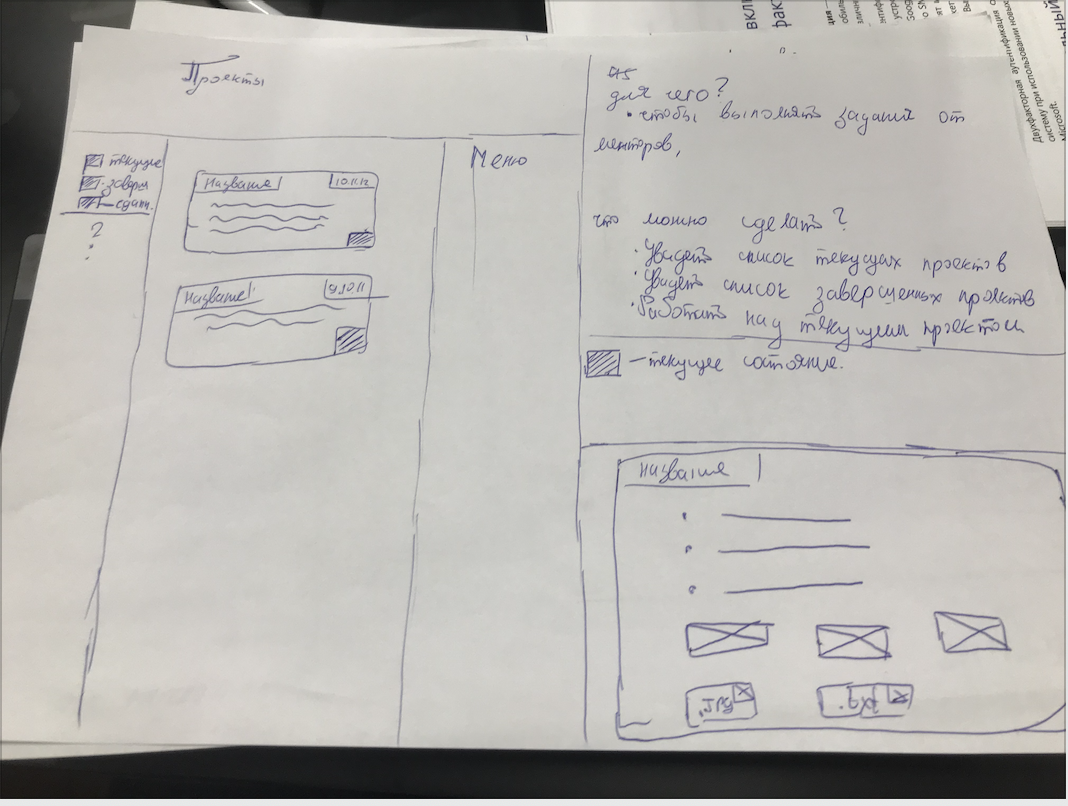 Проекты
текущие
заверш
сдан.
?
Название
10.11.12
Название
9.10.11
Меню
для чего?
• чтобы выполнять задания от
менторов,
что можно сделать?
• Увидеть список текущих проектов
• Увидеть список завершенных проектов
• Работать над текущим проектом
— текущее состояние.
Название
.JPG
Двухфакторная аутентификация
систему при использовании новых
Microsoft.